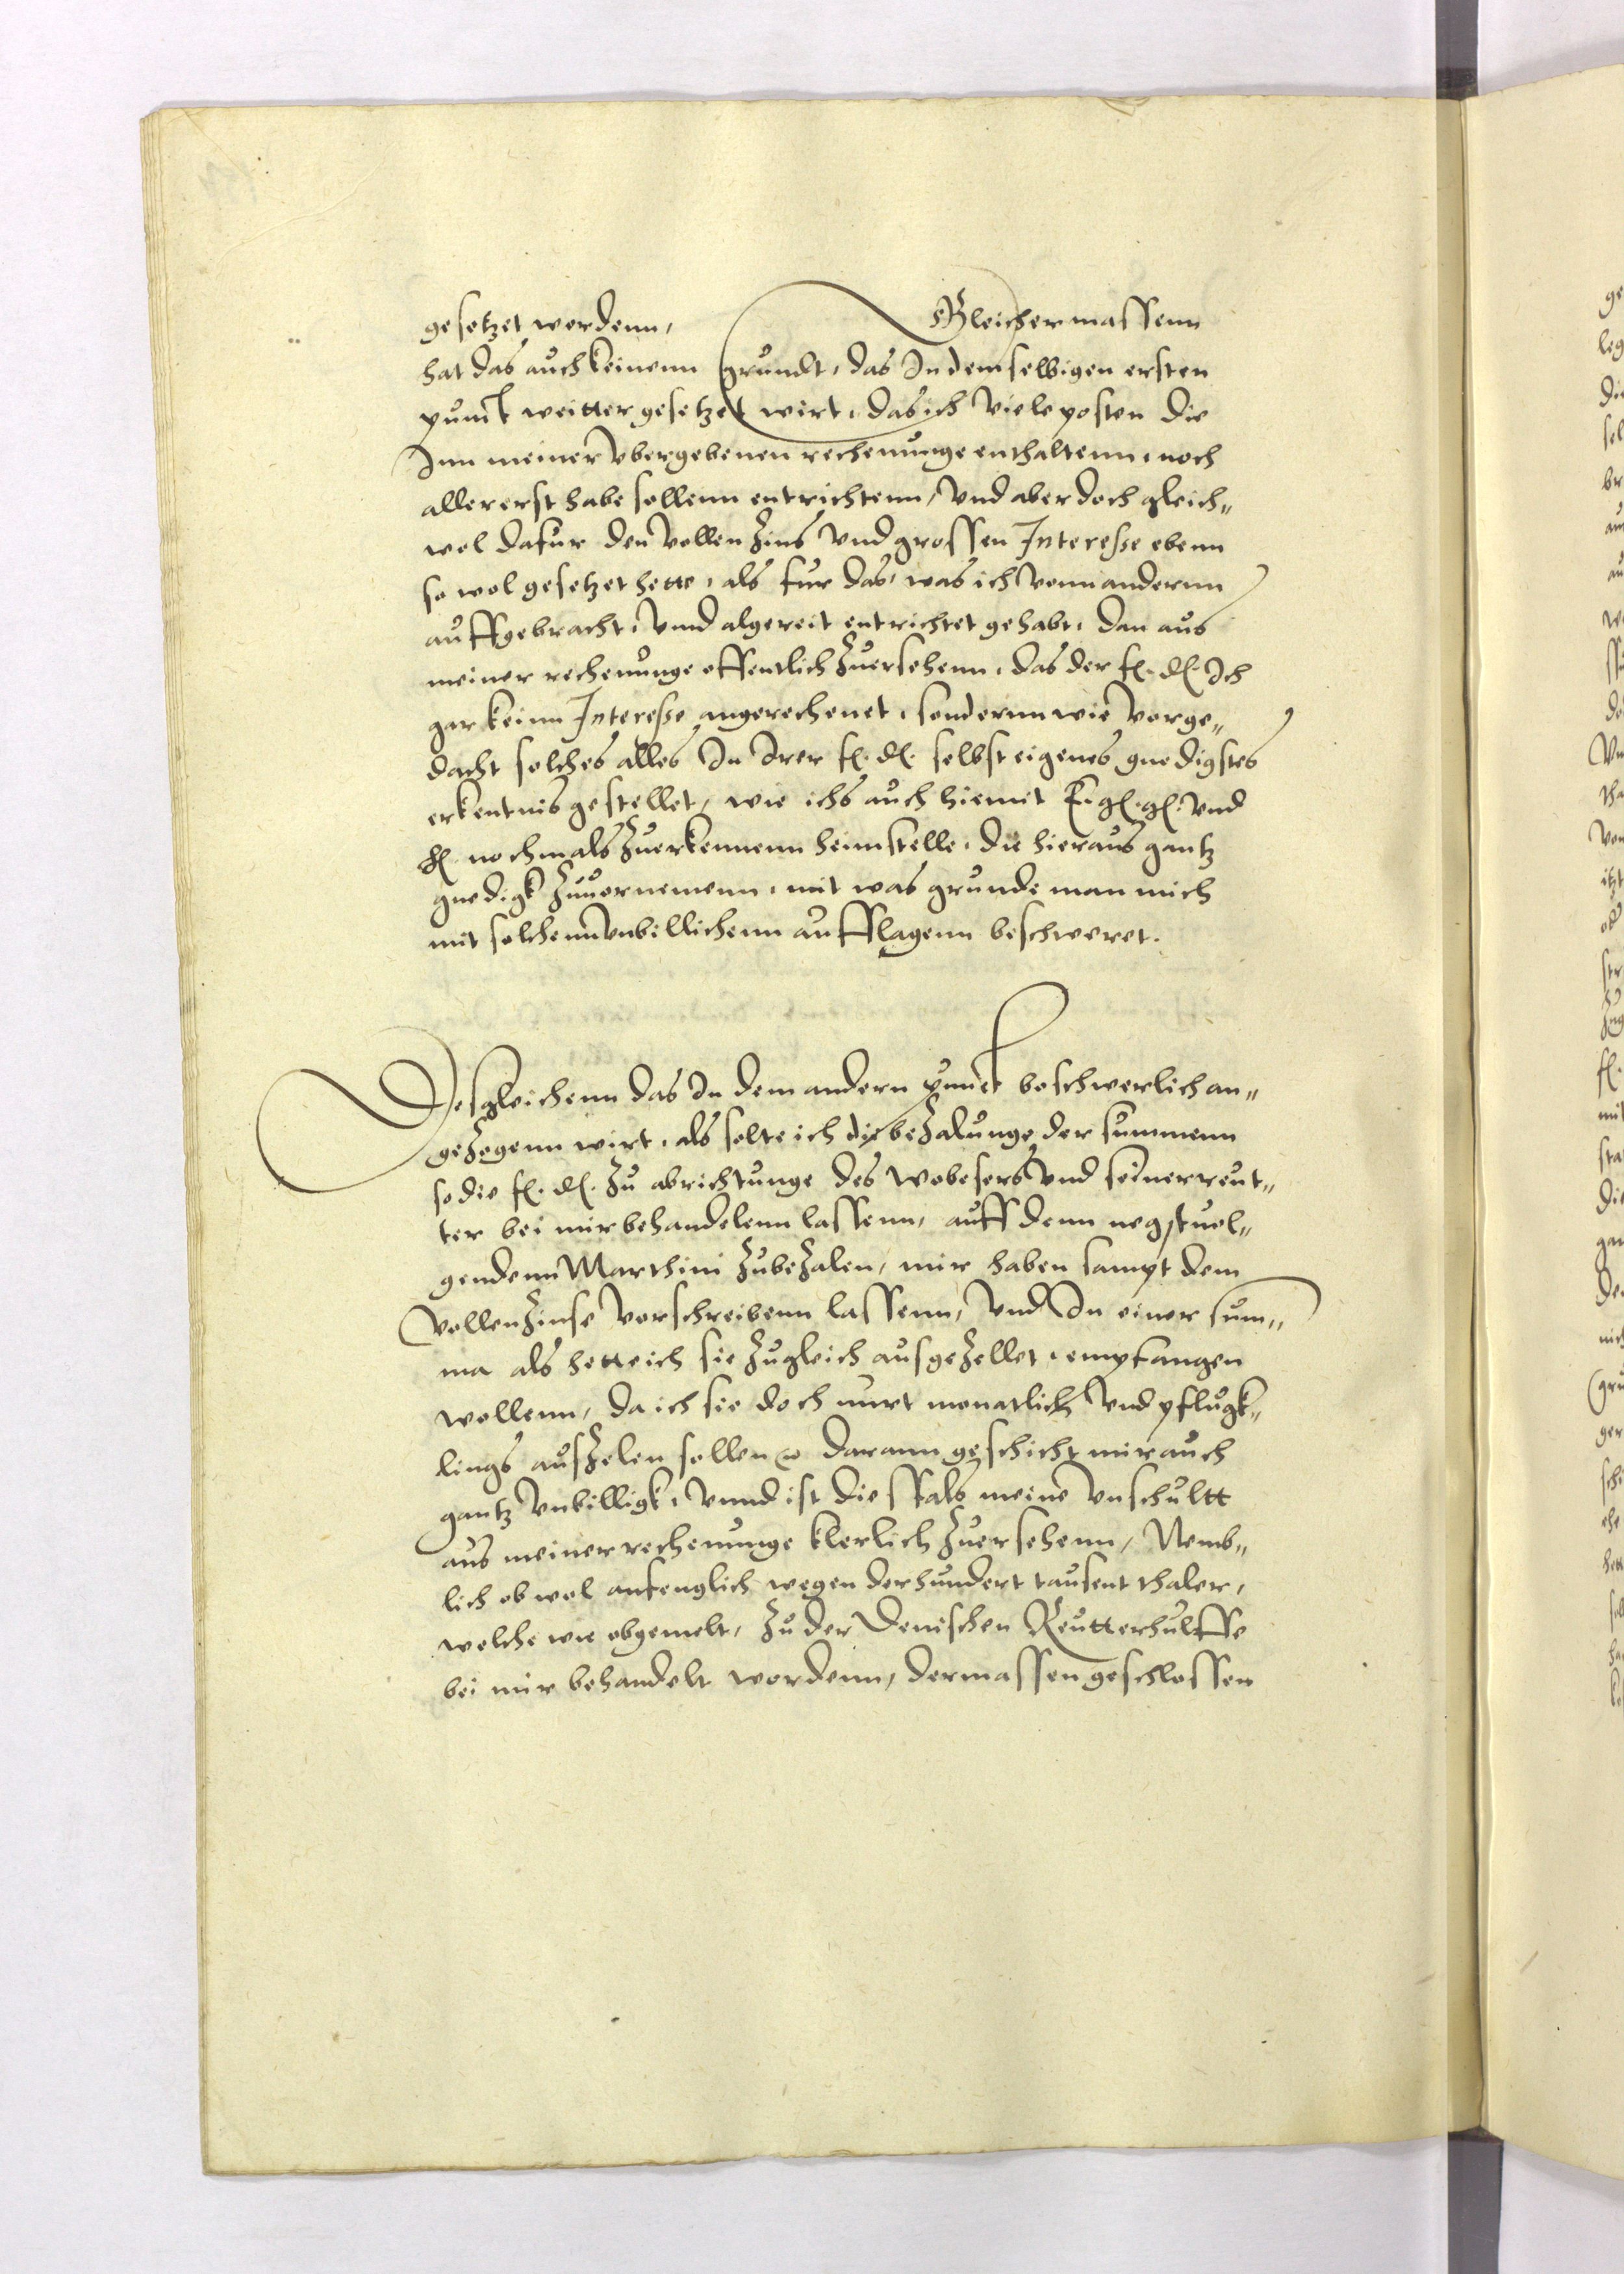 gesetzet werdenn, Gleichermassenn
hat das auch keinenn grundt, das In demselbigen ersten
punct weitter gesetzet wirt, das ich viele posten die
Inn meiner vbergebenen rechenunge enthaltenn, noch
allererst habe sollenn entrichtenn, vnd aber doch gleich„
wol dafur den vollen Zins vnd grossen Interesse ebenn
so wol gesetzet hette, als fur das, was ich vonn andernn
auffgebracht, vnnd algereit entrichtet gehabt, dan aus
meiner rechenunge offentlich Zuersehenn, das der f. d. Ich
gar keinn Interesse angerechenet, sondernn wie vorge„
dacht solches alles In Irer f. d. selbst eigenes gnedigstes
erkentnis gestellet, wie ichs auch hiemit E. g. g. vnd
nochmals Zuerkennenn heimstelle, die hieraus gantz
gnedigk Zuuornemenn, mit was grunde man mich
mit solchenn vnbillichenn aufflagenn beschweret.
Desgleichenn das In dem andern punct beschwerlich an„
geZogenn wirt, als solte ich die beZalunge der summenn
so die f. d. Zu abrichtunge des Wobesers vnd seiner reut„
ter bei mir behandelenn lassenn, auff denn negstuol„
gendenn Marthini ZubeZalen, mir haben sampt dem
vollen Zinse vorschreibenn lassenn, vnd In einer sum„
ma als hette ich sie Zugleich ausgeZellet, empfangen
wollenn, da ich sie doch nurt monatlich vnd pflugk„
lings ausZelen sollen darann geschicht mir auch
gantz vnbilligk, vnnd ist diesfals meine vnschultt
aus meiner rechenunge klerlich Zuersehenn, Nemb„
lich ob wol anfenglich wegen der hundert tausent thaler,
welche wie obgemelt, Zu der Denischen Reutterhulffe
bei mir behandelt wordenn, dermassen geschlossen